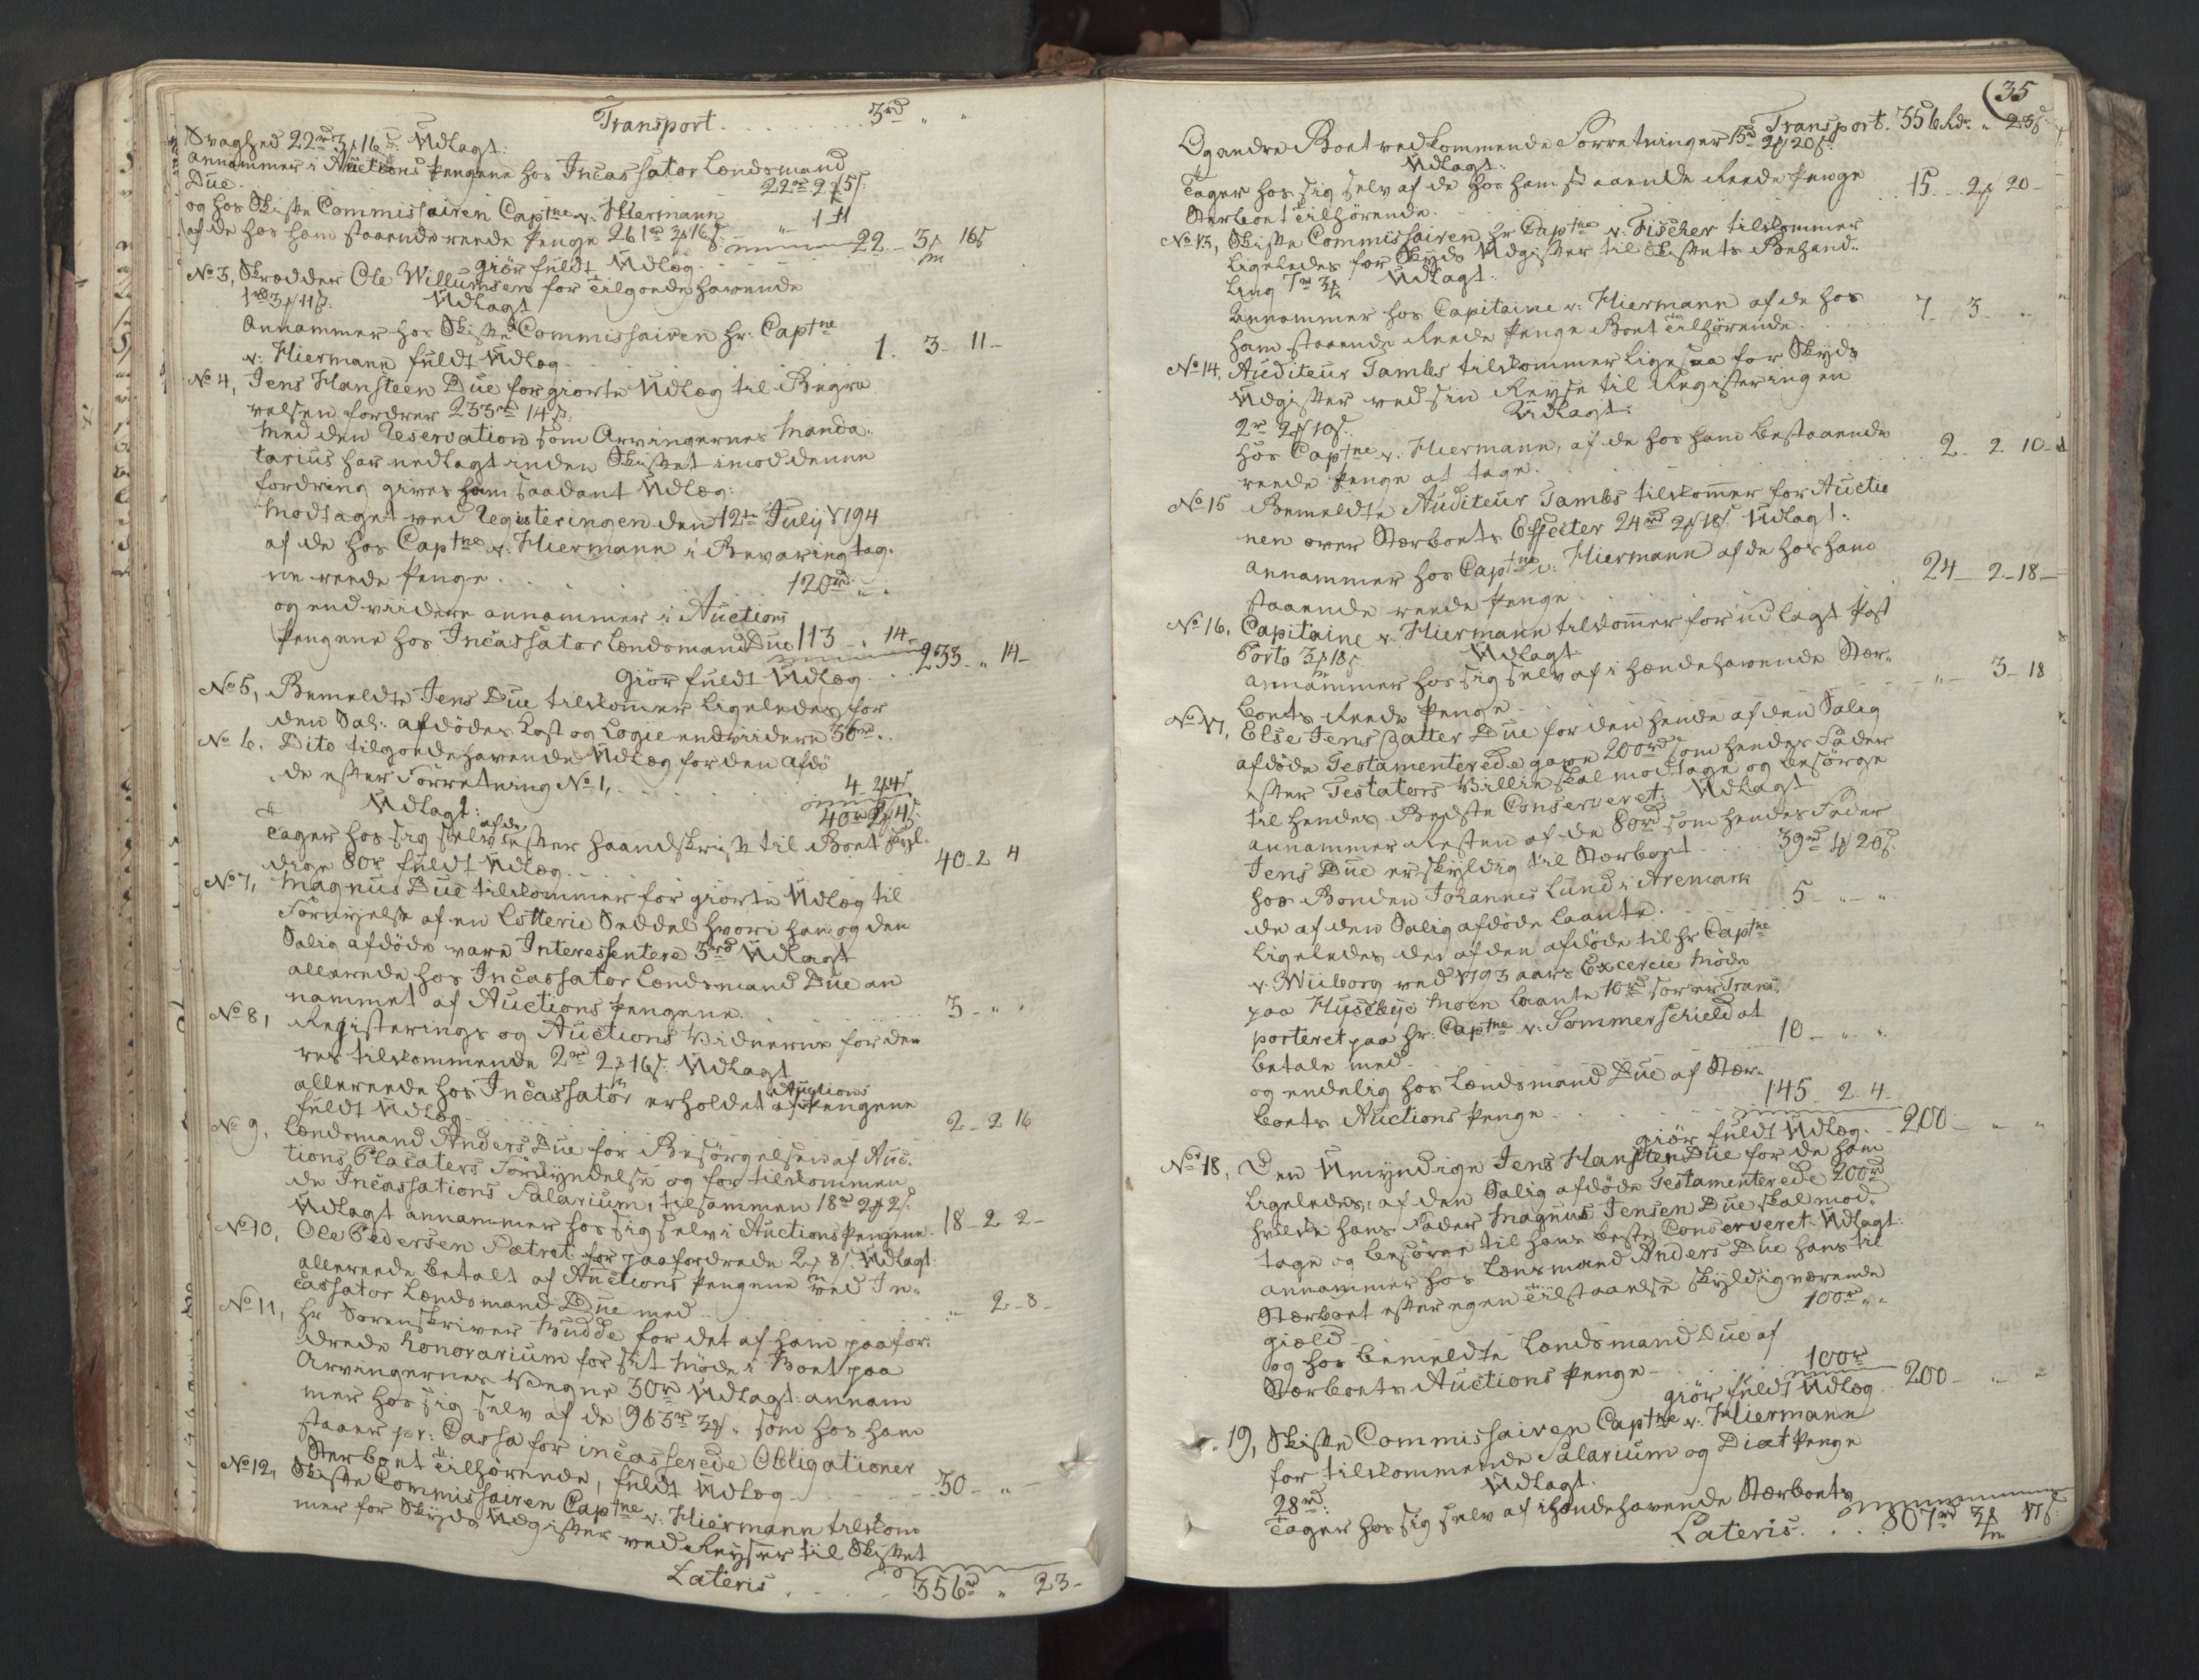 Transport . . . . . . . 3rd „ „
Svaghed 22rd 3 16s. Udlagt:
annammer i Auctions Pengene hos Incassator Lendsmand
Due. 22rd 2 5s.
og hos Skifte Commissairen Captne v. Hiermann
af de hos ham staaende reede Penge 261rd 3 16s. „ 1 11
giør fuldt Udlæg. 22 - 3 16s
No 3, Skrædder Ole Willumsen for tilgoedehavende
1rd 3 11s. Udlagt
annammer hos Skifte Commissairen Hr: Captne
v: Hiermann fuldt Udlæg 1. 3- 11-
No 4, Jens Hansteen Due for giorte Udlæg til Begra
velsen fordrer 233rd 14s.
Med den Reservation som Arvingernes Manda-
tarius har nedlagt inden Skiftet imod denne
fordring gives ham saadant Udlæg:
Modtaget ved Registeringen den 12te July 1794
af de hos Captne v. Hiermann i Bevaring tag-
ne reede Penge . . . 120rd „ „
og end viidere annammer i Auctions
Pengene hos Incassator Lendsmand Due 113 - „ 14-
giør fuldt Udlæg . . 233 - „ 14-
No 5, Bemeldte Jens Due tilkomer ligeledes for
den Sal: afdødes Kost og Logie endviidere 36rd.
No 6, Dito tilgoedehavende Udlæg for den afdø
de efter Forretning No 1, . . . 4 2 4s
Udlagt: 40rd 2 4s.
Tager hos sig selv af de efter Haandskrift til Boet skyl-
dige 80r fuldt Udlæg. 40-2 4
No 7, Magnus Due tilkommer for giorte Udlæg til
Fornyelse af en Lotterie Seddel hvori han og den
Salig afdøde vare Interessentere 3rd Udlagt
allerede hos Incassator Lendsmand Due an
nammet af Auctions Pengene. 3 - „ „
No 8, Registerings og Auctions Vidnerne for de
res tilkommende 2rd 2 16s. Udlagt
allereede hos Incassator erholdet af Auctions Pengene
fuldt Udlæg 2 - 2 16
No 9, Lendsmand Anders Due for Besørgelsen af Auc-
tions Placaters Forkyndelse og for tilkommen
de Incassations Salarium, tilsammen 18rd 2 2s.
Udlagt annammer hos sig selv i Auctions Pengene. 18 - 2 2-
No 10, Ole Pedersen Sætret for paafordrede 2 8s. Udlagt:
allereede betalt af Auctions Pengene ved In-
cassator Lendsmand Due med . . „ 2 - 8-
No 11, Hr Sorenskriver Budde for det af ham paafor-
drede Honorarium for sit Møde i Boet paa
Arvingernes Vegne 30rd Udlagt: annam
mer hos sig selv af de 963rd 3 „ som hos ham
staaer pr: Cassa for incasserede Obligationer
Sterboet tilhørende, fuldt Udlæg 30 - „ -
No 12, Skifte Commissairen Captne v. Hiermann tilkom
mer for Skyds Udgifter ved Reyser til Skiftet
Lateris . . . 356rd „ 23-
35
Transport. 356 Rdr „ 23s
Og andre Boet vedkommende Forretninger 15rd 2 20s.
Udlagt:
Tager hos sig selv af de hos ham staaende Reede Penge
Sterboet tilhørende. 15 - 2 20-
No 13, Skifte Commissairen Hr Captne v. Fischer tilkommer
ligeledes for Skyds Udgifter til Skiftets Behand-
ling 7rd 3 Udlagt:
annammer hos Capitaine v: Hiermann af de hos
ham staaende Reede Penge Boet tilhørende. 7 - 3 - „
No 14, Auditeur Tambs tilkommer ligesaa for Skyds
Udgifter ved sin Reyse til Registeringen
2rd 2 10s. Udlagt:
hos Captne v. Hiermann, af de hos ham bestaaende
reede Penge at tage. 2 - 2 10-
No 15 Bemeldte Auditeur Tambs tilkomer for Auctio
nen over Sterboets Effecter 24rd 2 18s. Udlagt:
annammer hos Captne v. Hiermann af de hos ham
staaende reede Penge 24 - 2 - 18 -
No 16, Capitaine v. Hiermann tilkomer for udlagt Post
Porto 3 18s. Udlagt
annammer hos sig selv af i hændehavende Stær-
boets Reede Penge „ - 3 - 18
No 17, Else Jens Datter Due for den hende af den Salig
afdøde Testamenterede gave 200rd som hendes Fader
efter Testators Villie skal modtage og besørge
til hendes Bedste Conserveret: Udlagt
annammer Resten af de 80rd som hendes Fader
Jens Due er skyldig til Sterboet . . . 39rd 1 20s.
hos Bonden Johannes Lund i Aremark
de af den Salig afdøde laante . . . 5 - „ - „
ligeledes de af den afdøde til Hr Captne
v. Wiiborg ved 1793 aars Excercie Møde
paa Huseby Moen laante 10rd som er Trans-
porteret paa Hr: Captne v. Sommerschield at
betale med 10 - „ - „
og endelig hos Lendsmand Due af Stær-
boets Auctions Penge . . . 145 2 4
giør fuldt Udlæg. 200 - „ „
No 18, Den Umyndige Jens Hansteen Due for de ham
ligeledes, af den Salig afdøde Testamenterede 200rd
hvilke hans Fader Magnus Jensen Due skal mod-
tage og besørge til hans beste Conserveret. Udlagt:
annammer hos Lensmand Anders Due hans til
Stærboet efter egen tilstaaelse skyldig værende
giæld 100rd „ „
og hos bemeldte Landsmand Due af
Stærboets Auctions Penge . . 100rd
giør fuldt Udlæg . 200 - „ -
19, Skifte Commissairen Captne v. Hiermann
for tilkommende Salarium og Diæt Penge
28rd. Udlagt.
Tager hos sig selv af ihændehavende Stærboets
Lateris. . . . 807rd 3 17s.